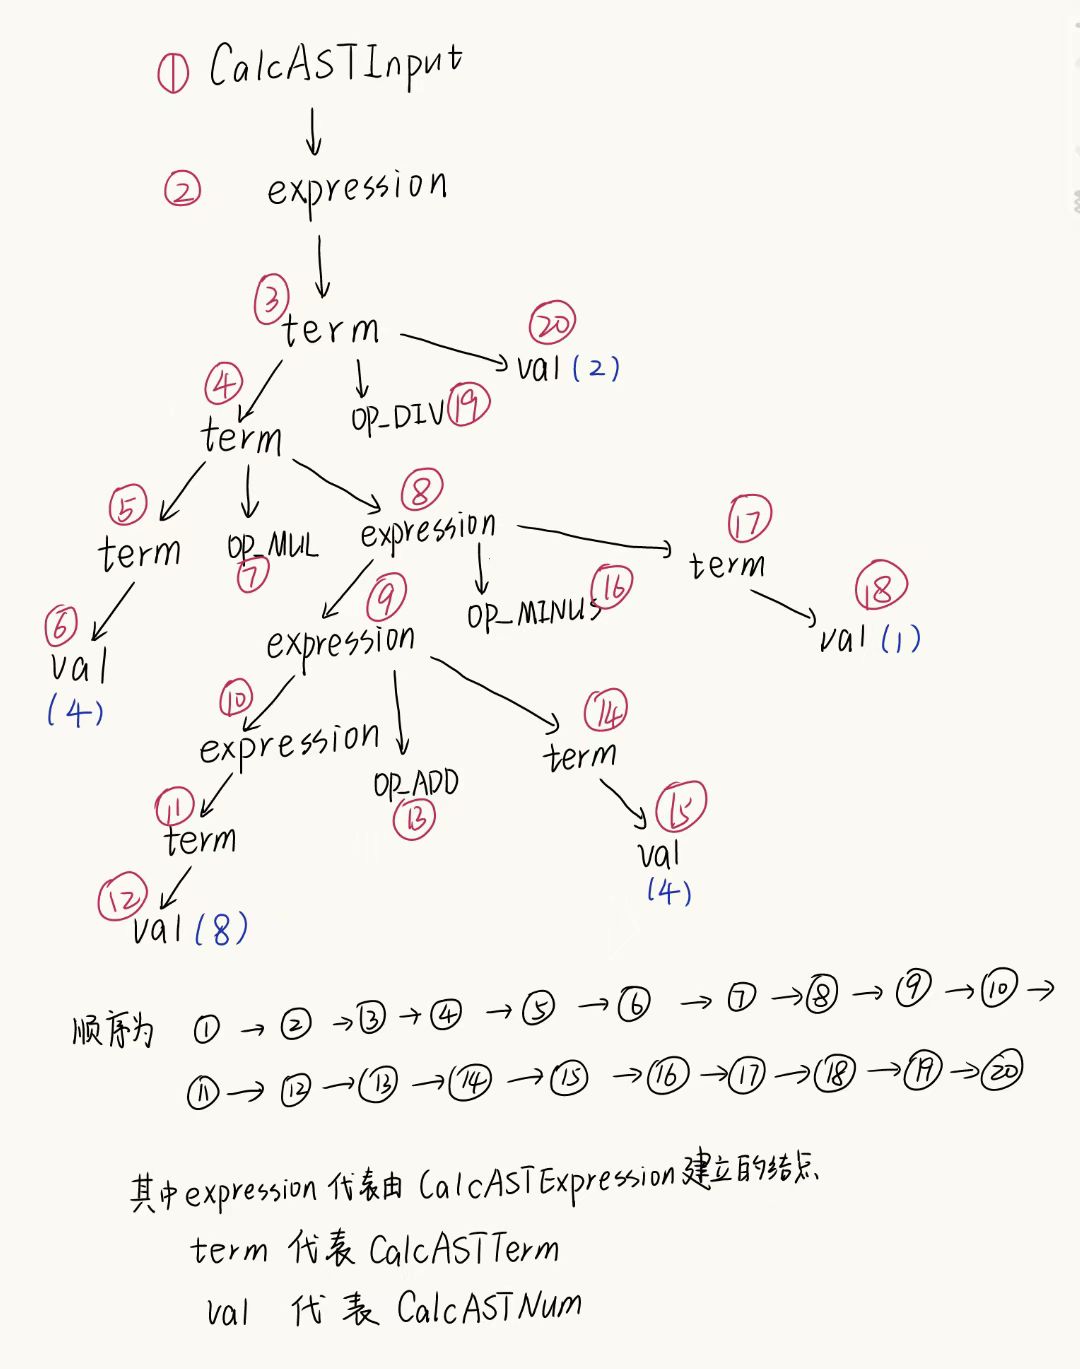 ① CalcASTInput
② expression
③ term
⑳ val (2)
④ term
OP_DIV ⑲
⑤ term
OP_MUL ⑦
⑧ expression
⑰ term
⑥ val (4)
⑨ expression
OP_MINUS ⑯
⑱ val (1)
⑩ expression
OP_ADD ⑬
⑭ term
⑪ term
⑮ val (4)
⑫ val (8)
顺序为 ① → ② → ③ → ④ → ⑤ → ⑥ → ⑦ → ⑧ → ⑨ → ⑩ →
⑪ → ⑫ → ⑬ → ⑭ → ⑮ → ⑯ → ⑰ → ⑱ → ⑲ → ⑳
其中expression 代表由 CalcASTExpression建立的结点
term 代表 CalcASTTerm
val 代表 CalcASTNum